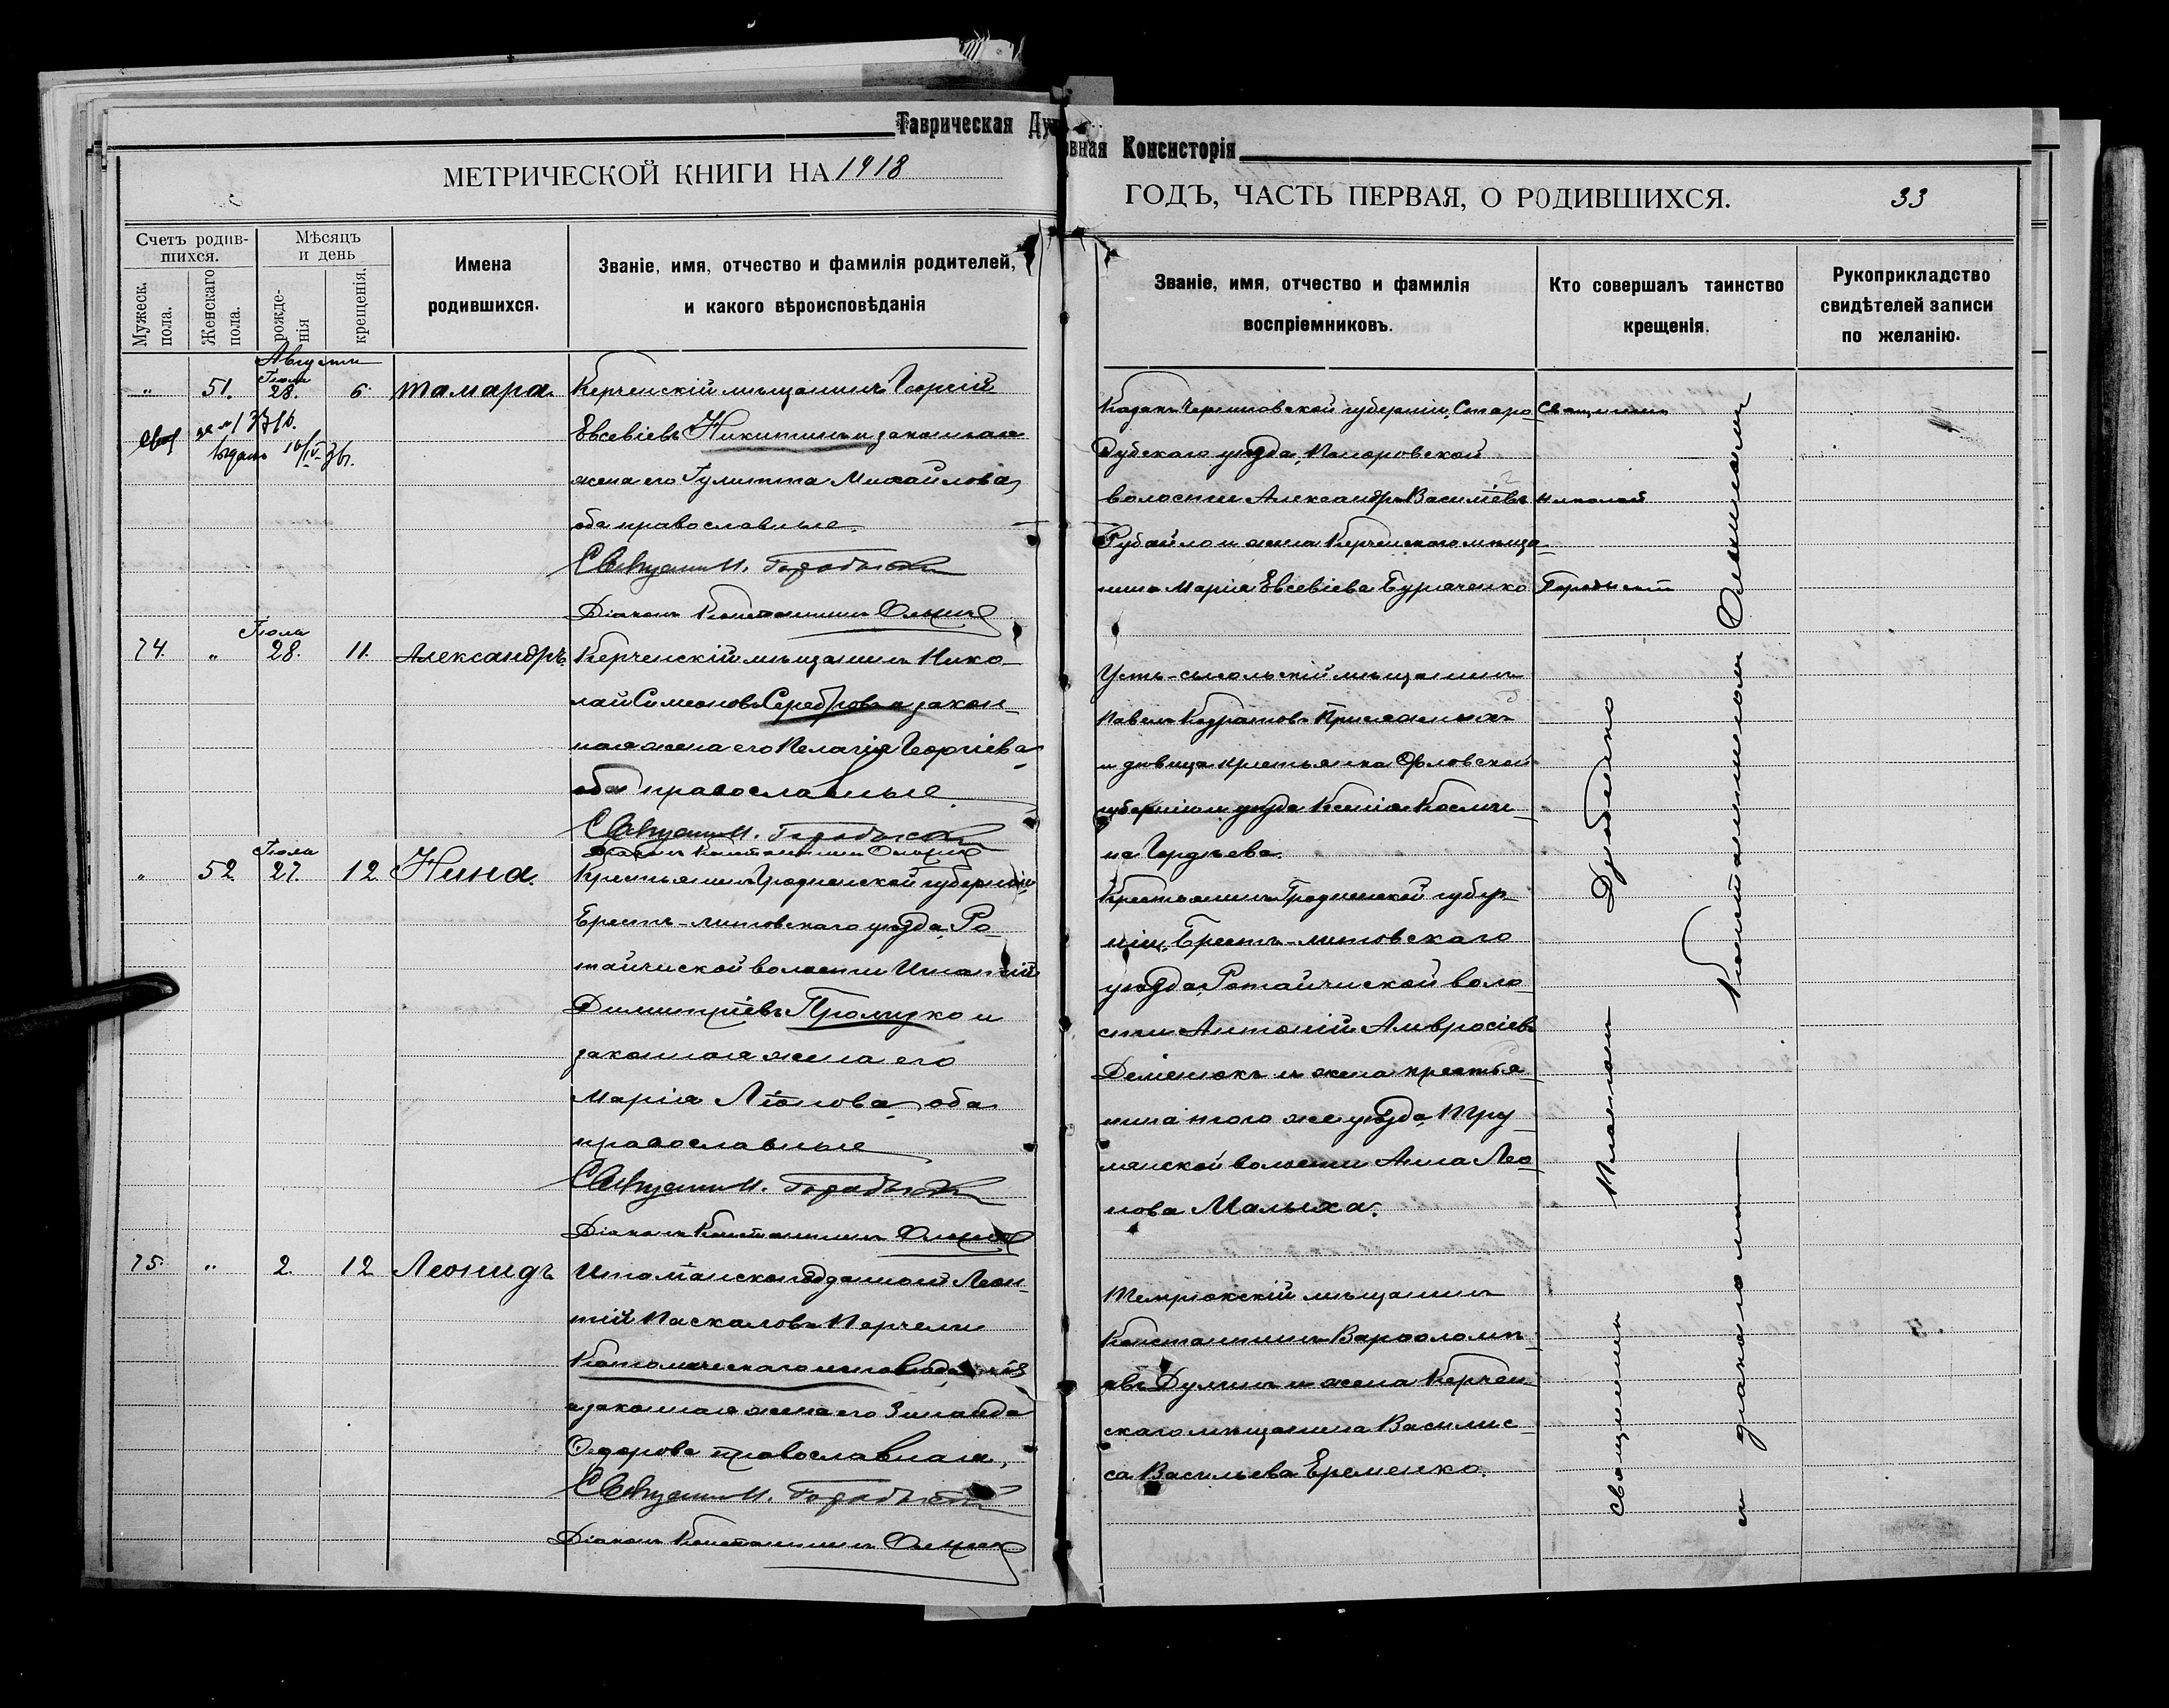 Таврическая Ду
вная Консисторія
МЕТРИЧЕСКОЙ КНИГИ НА 1918
ГОДЪ, ЧАСТЬ ПЕРВАЯ, О РОДИВШИХСЯ.
33
Счетъ родив-
шихся.
Мужеск.
пола.
Женскаго
пола.
Мѣсяцъ
и день
рожде-
нія
крещенія.
Имена
родившихся.
Званіе, имя, отчество и фамилія родителей,
и какого вѣроисповѣданія
Званіе, имя, отчество и фамилія
воспріемниковъ.
Кто совершалъ таинство
крещенія.
Рукоприкладство
свидѣтелей записи
по желанію.
Августа
" 51. Іюля 28. 6. Тамара.
Керченскій мѣщанинъ Георгій
Евсевіевъ Никитинъ и законная
жена его Іулитта Михайлова,
оба православные.
Священ. Н. Городыскій
Діаконъ Константинъ
Казакъ Черниговской губерніи, Старо
Дубскаго уѣзда,
волости Александръ Васильевъ
Рубайло и жена Керченскаго мѣща-
нина Марія Евсевіева Бурчаченко
Священникъ
Николай
Городыскій
74. " Іюля 28. 11. Александръ.
Керченскій мѣщанинъ Нико-
лай Симеоновъ Серебровъ и закон-
ная жена его Пелагія Георгіева
оба православные.
Священ. Н. Городыскій
Діаконъ Константинъ
Усть-сысольскій мѣщанинъ
Павелъ
и дѣвица крестьянка Орловской
губерніи и уѣзда Ксенія Косми-
на Гордѣева.
" 52. Іюля 27. 12 Нина.
Крестьянинъ Гродненской губерніи
Брестъ-литовскаго уѣзда, Ро-
тайчиской волости
Димитріевъ и
законная жена его
Марія Леонова, оба
православные
Священ. Н. Городыскій
Діаконъ Константинъ
Крестьянинъ Гродненской губер-
ніи, Брестъ-литовскаго
уѣзда, Ротайчиской воло-
сти Антоній Амвросіевъ
Деменюкъ и жена крестья-
нина того же уѣзда,
волости Анна Лео-
нова Малыха.
75. " 2. 12 Леонидъ
Итальянскоподданный Леон-
тій Паскаловъ Перчели
Католическаго исповѣданія
и законная жена его Зинаида
Ѳедорова православная,
Священ. Н. Городыскій
Діаконъ Константинъ
Темрюкскій мѣщанинъ
Константинъ Варѳоломѣ-
евъ Дулинъ и жена Керчен-
скаго мѣщанина Василис-
са Васильева Еременко.
священникъ Платонъ Дубенко
и діакономъ Константиномъ